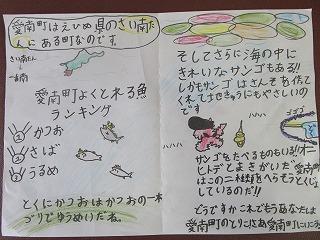 愛南町はえひめ県のさい南た
んにある町なのです。
さい南たん
↓
一番南
愛南町よくとれる魚
ランキング
1 かつお
2 さば
3 うるめ
とくにかつおはかつおの一本
づりでゆうめいだね。
そしてさらに海の中に
きれいなサンゴもある!!
しかもサンゴはさんそを作て
くれてはせきょうにもやさしいの
サンゴをたべるものもいる!!オニ
ヒトデとまきがいだ。愛南町
はこの二種類をへらそうとくじょ
しているのだ!!
どうですかこれでもうあなたは
愛南町のとりこだあ